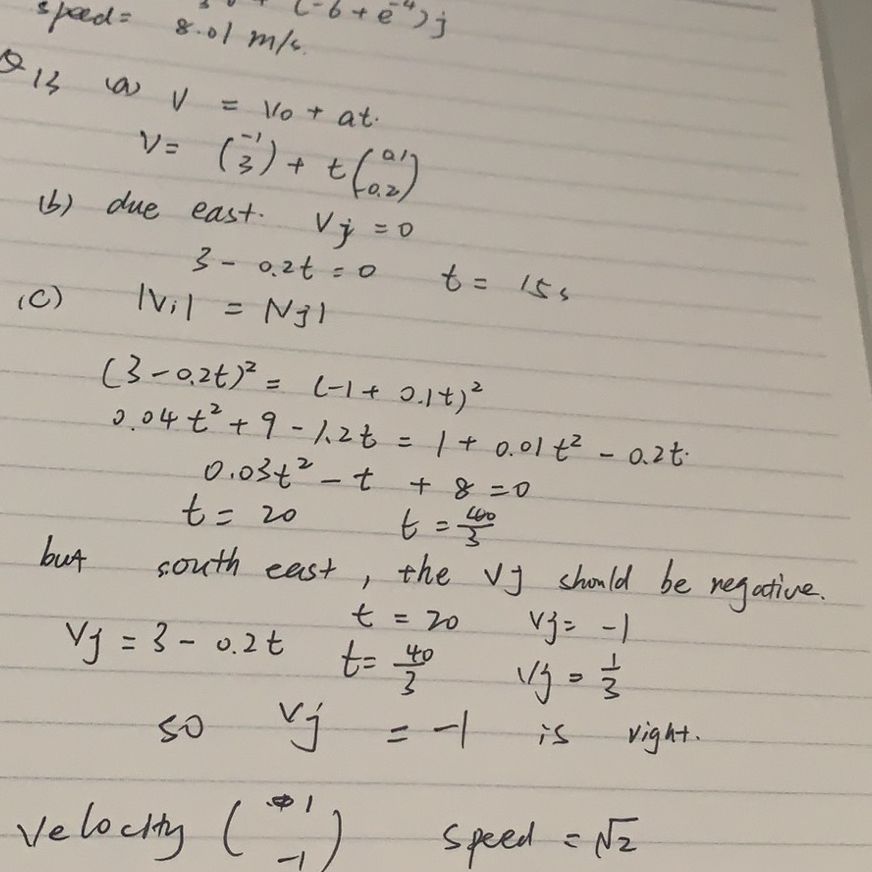 (-6 + e⁻⁴)j
speed = 8.01 m/s.
Q 13 (a) V = V₀ + at.
V = (-1 3) + t(0.1 -0.2)
(b) due east. Vj = 0
3 - 0.2t = 0 t = 15s
(c) |Vi| = |Vj|
(3 - 0.2t)² = (-1 + 0.1t)²
0.04t² + 9 - 1.2t = 1 + 0.01t² - 0.2t.
0.03t² - t + 8 = 0
t = 20 t = 40/3
but south east, the Vj should be negative.
t = 20 Vj = -1
Vj = 3 - 0.2t t = 40/3 Vj = 1/3
so Vj = -1 is right.
Velocity (1 -1) speed = √2